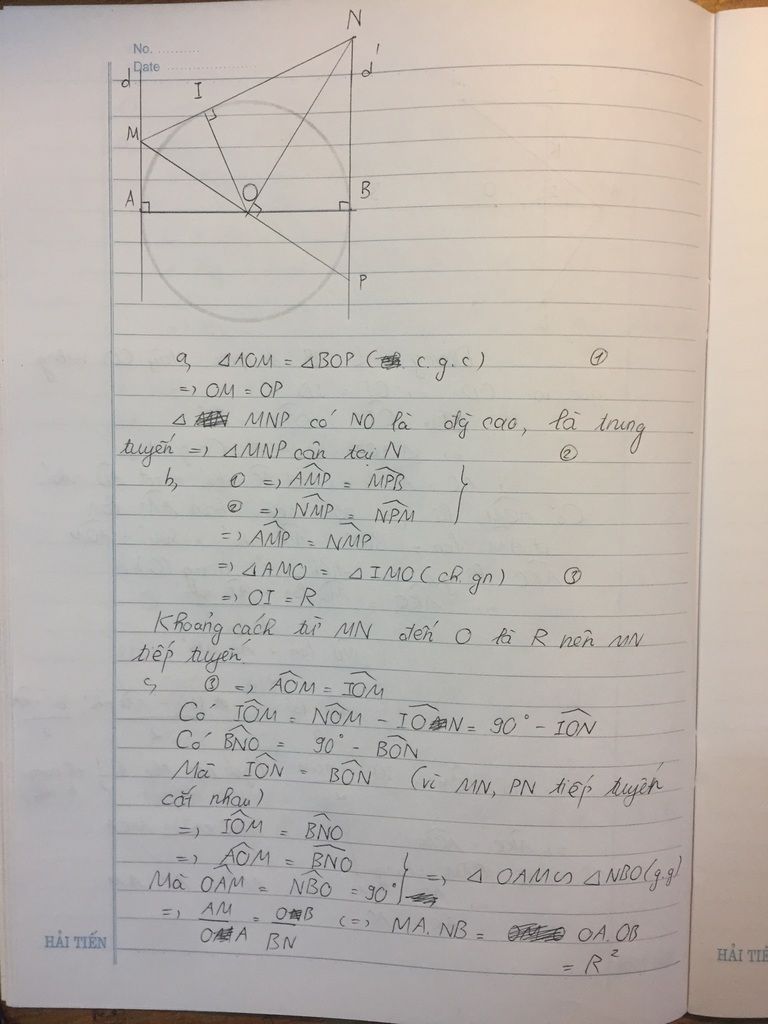 N
No. ..........
Date ......................
d
d'
I
M
A
O
B
P
a, △AOM = △BOP ( c.g.c) ①
=> OM = OP
△ MNP có NO là đg cao, là trung
tuyến => △MNP cân tại N ②
b, ① => AM̂P = MP̂B
② => NM̂P = NP̂M
=> AM̂P = NM̂P
=> △AMO = △IMO (ch.gn) ③
=> OI = R
Khoảng cách từ MN đến O là R nên MN
tiếp tuyến.
c, ③ => AÔM = IÔM
Có IÔM = NÔM - IÔN = 90° - IÔN
Có BN̂O = 90° - BÔN
Mà IÔN = BÔN (vì MN, PN tiếp tuyến
cắt nhau)
=> IÔM = BN̂O
=> AÔM = BN̂O } => △ OAM ∽ △NBO (g.g)
Mà OÂM = NB̂O = 90°
=> AM/OA = OB/BN <=> MA.NB = OA.OB
= R²
HẢI TIẾN
HẢI TIẾ